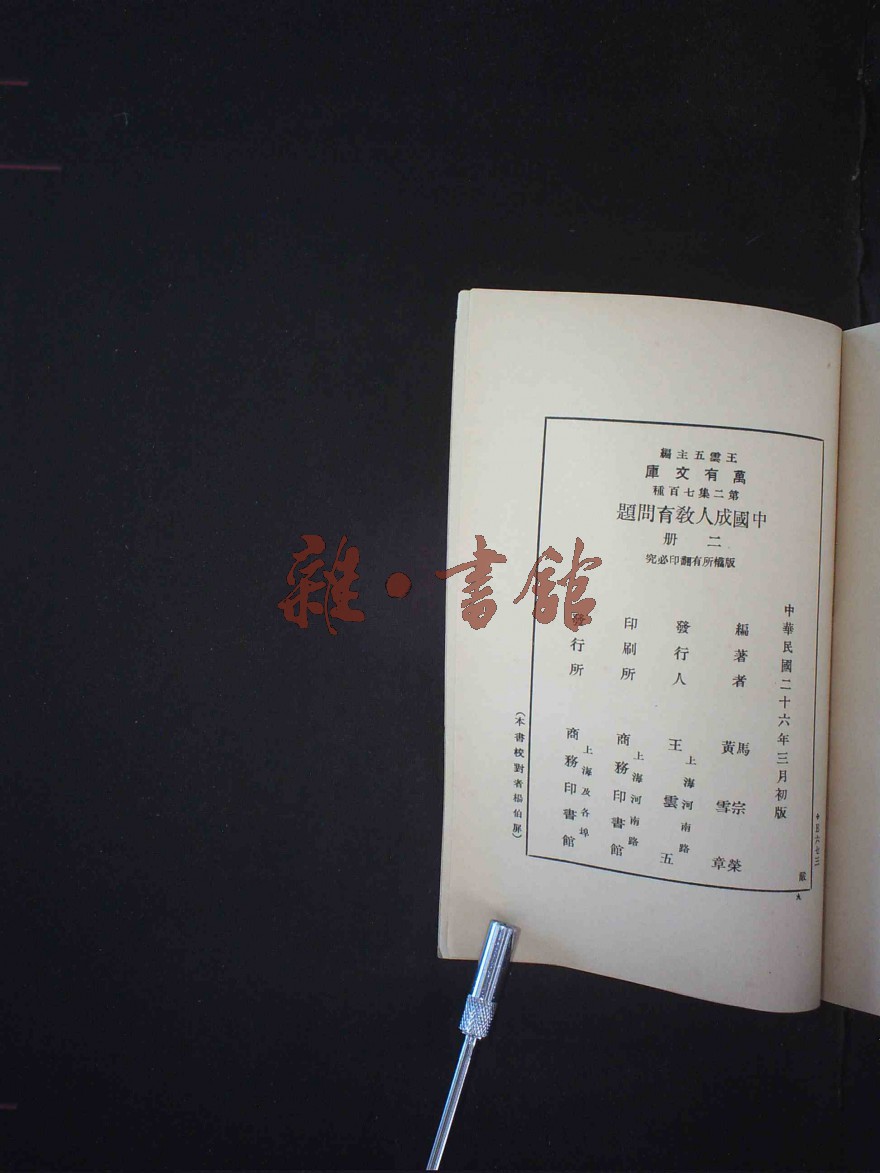 王雲五主編
萬有文庫
第二集七百種
中國成人教育問題
二册
版權所有翻印必究
中華民國二十六年三月初版
編著者 馬宗榮 黃雪章
發行人 王雲五
上海河南路
印刷所 商務印書館
上海河南路
發行所 商務印書館
上海及各埠
(本書校對者楊伯屏)
雜·書館